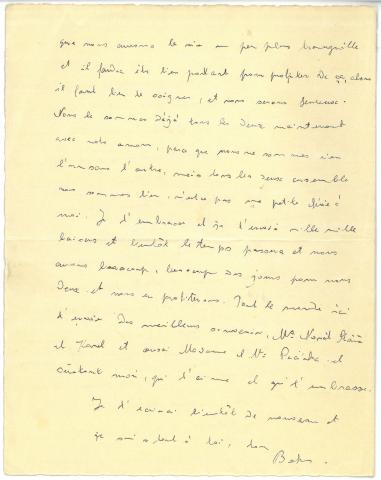 que nous aurons la vie un peu plus tranquille
et il faudra être bien portant pour profiter de ça, alors
il faut bien te soigner, et nous serons heureux.
Nous le sommes déjà tous les deux maintenant
avec notre amour, parce que nous ne sommes rien
l'un sans l'autre, mais tous les deux ensemble
nous sommes bien, n'est-ce pas ma petite chérie à
moi. Je t'embrasse et je t'envoie mille mille
baisers et bientôt le temps passera et nous
aurons beaucoup, beaucoup des jours pour nous
deux et nous en profiterons. Tout le monde ici
t'envoie des meilleurs souvenirs, Mr
et Karel et aussi Madame et Mr et
maintenant moi, qui t'aime et qui t'embrasse.
Je t'écrirai bientôt de nouveau et
je suis tout à toi, ton